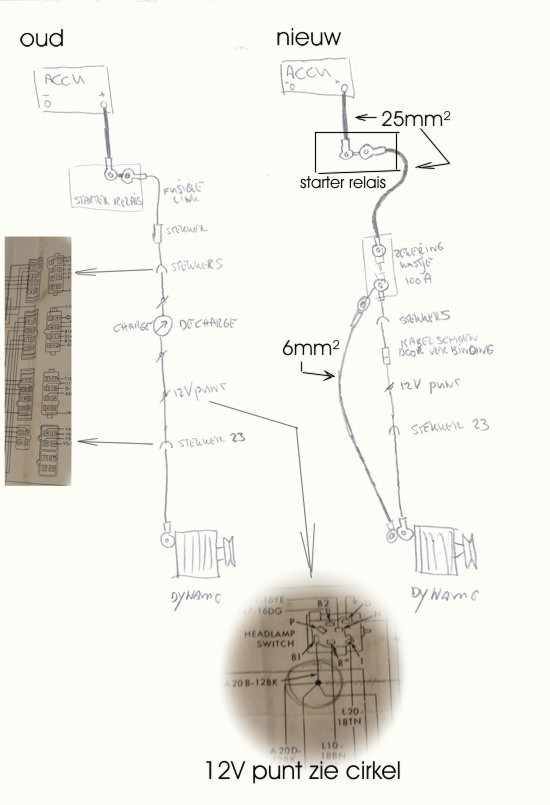 oud
nieuw
ACCU
- +
ACCU
- +
25mm²
STARTER RELAIS
FUSIBLE
LINK
starter relais
STEKKER
STEKKERS
ZEKERING
KASTJE
100 A
CHARGE DECHARGE
STEKKERS
KABELSCHOEN
DOOR VERBINDING
6mm²
12V PUNT
12V PUNT
STEKKER 23
STEKKER 23
DYNAMO
DYNAMO
-16YE
B2
7-16DG
P
H
HEADLAMP
SWITCH
B1
R
I
A20B-12BK
L20-
18TN
A20D-
12BK
L10-
18BN
12V punt zie cirkel